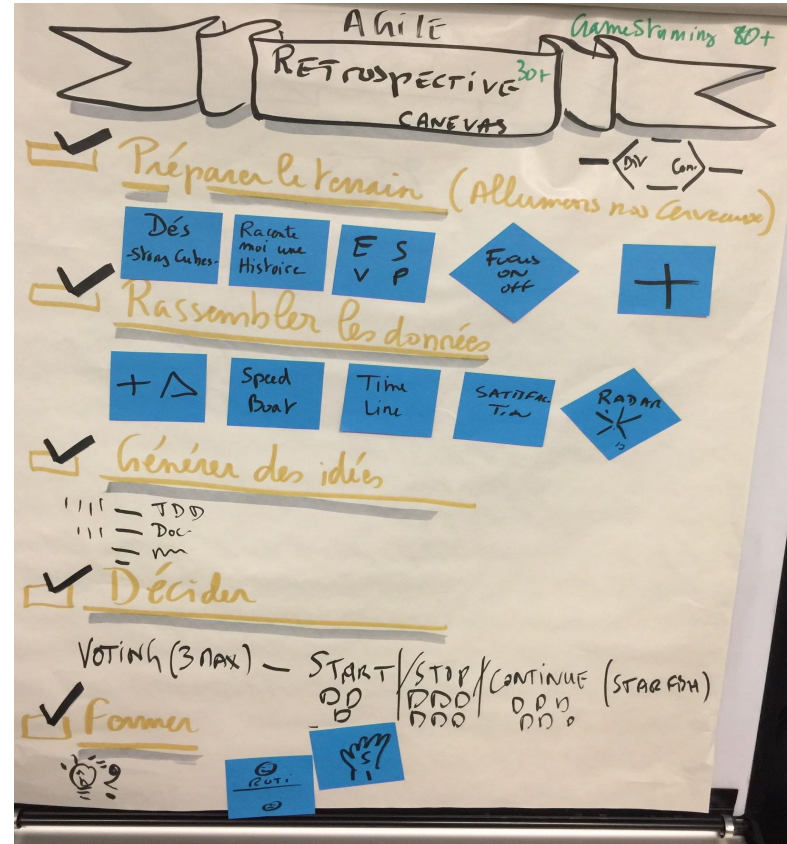 AGILE
GameStorming 80+
RETROSPECTIVE 30+
CANEVAS
DIV Con.
Préparer le terrain (Allumons nos Cerveaux)
Dés
-Story Cubes-
Raconte
moi une
Histoire
E S
V P
Focus
ON
OFF
+
Rassembler les données
+ Δ
Speed
Boat
Time
Line
SATISFAC
Tion
RADAR
Générer des idées
TDD
Doc
Décider
VOTING (3 MAX) — START / STOP / CONTINUE (STARFISH)
Fermer
ROTI
5